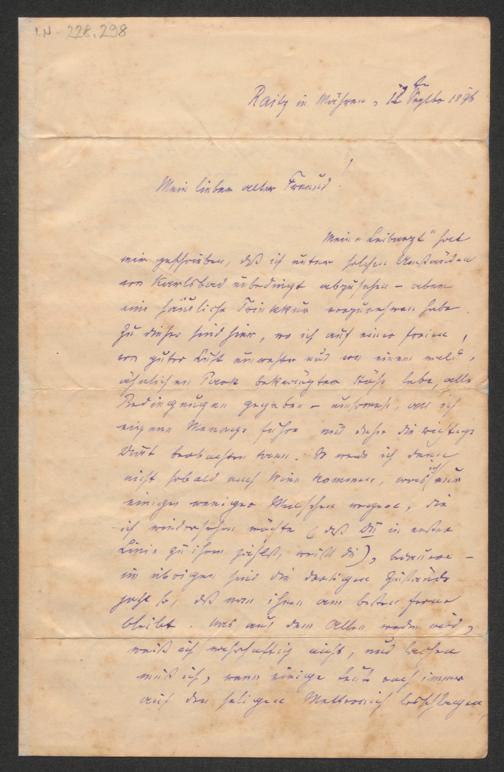 I.N. 228.298
Raitz in Mähren, 12 ten Septbr 1876
Mein lieber alter Freund!
Mein „Leibarzt" hat
mir geschrieben, daß ich unter solchen Umständen
von Karlsbad unbedingt abzusehen – aber
eine häusliche Trinkkur vorzunehmen habe.
Zu dieser sind hier, wo ich auf einer freien,
von guter Luft umwehten und von einem wald-
ähnlichen Park bekränzten Höhe lebe, alle
Bedingungen gegeben – umsomehr, als ich
eigene Menage führe und daher die richtige
Diät beobachten kann. So werde ich denn
nicht sobald nach Wien kommen, was ich nur
einiger weniger Menschen wegen, die
ich wiedersehen möchte (daß Du in erster
Linie zu ihnen zählst, weißt du), bedaure –
im übrigen sind die dortigen Zustände
so, daß man ihnen am besten ferne
bleibt. Was aus dem Allen werden wird,
weiß ich wahrhaftig nicht, und lachen
muß ich, wenn einige Leute noch immer
auf den seligen Metternich losschlagen,